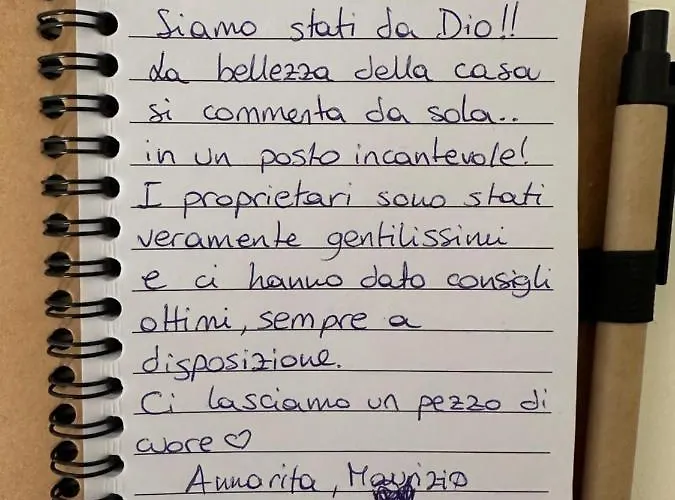 Siamo stati da Dio!!
La bellezza della casa
si commenta da sola..
in un posto incantevole!
I proprietari sono stati
veramente gentilissimi
e ci hanno dato consigli
ottimi, sempre a
disposizione.
Ci lasciamo un pezzo di
cuore ♡
Annarita, Maurizio